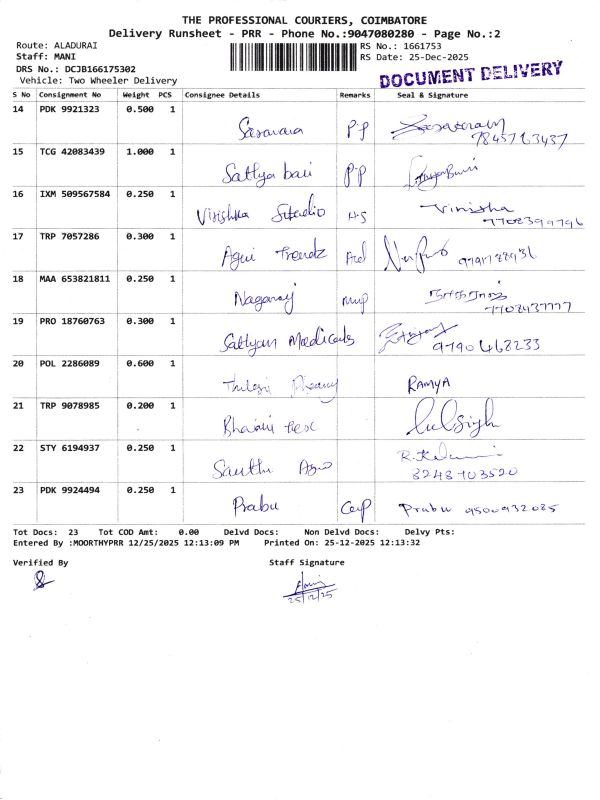 THE PROFESSIONAL COURIERS, COIMBATORE
Delivery Runsheet - PRR - Phone No.:9047080280 - Page No.:2
Route: ALADURAI
Staff: MANI
DRS No.: DCJB166175302
Vehicle: Two Wheeler Delivery
RS No.: 1661753
RS Date: 25-Dec-2025
DOCUMENT DELIVERY
S No Consignment No Weight PCS Consignee Details Remarks Seal & Signature
14 PDK 9921323 0.500 1 P-P 7845763437
15 TCG 42083439 1.000 1 Sathya bai P-P
16 IXM 509567584 0.250 1 H-S Vinisha 7708399796
17 TRP 7057286 0.300 1 Trendz
18 MAA 653821811 0.250 1 Nagaraj நாகராஜ் 7708437777
19 PRO 18760763 0.300 1 Sathyam Medicals 9790468233
20 POL 2286089 0.600 1 RAMYA
21 TRP 9078985 0.200 1
22 STY 6194937 0.250 1 8248703520
23 PDK 9924494 0.250 1 Prabu Prabu 9500932025
Tot Docs: 23 Tot COD Amt: 0.00 Delvd Docs: Non Delvd Docs: Delvy Pts:
Entered By :MOORTHYPRR 12/25/2025 12:13:09 PM Printed On: 25-12-2025 12:13:32
Verified By Staff Signature
25/12/25